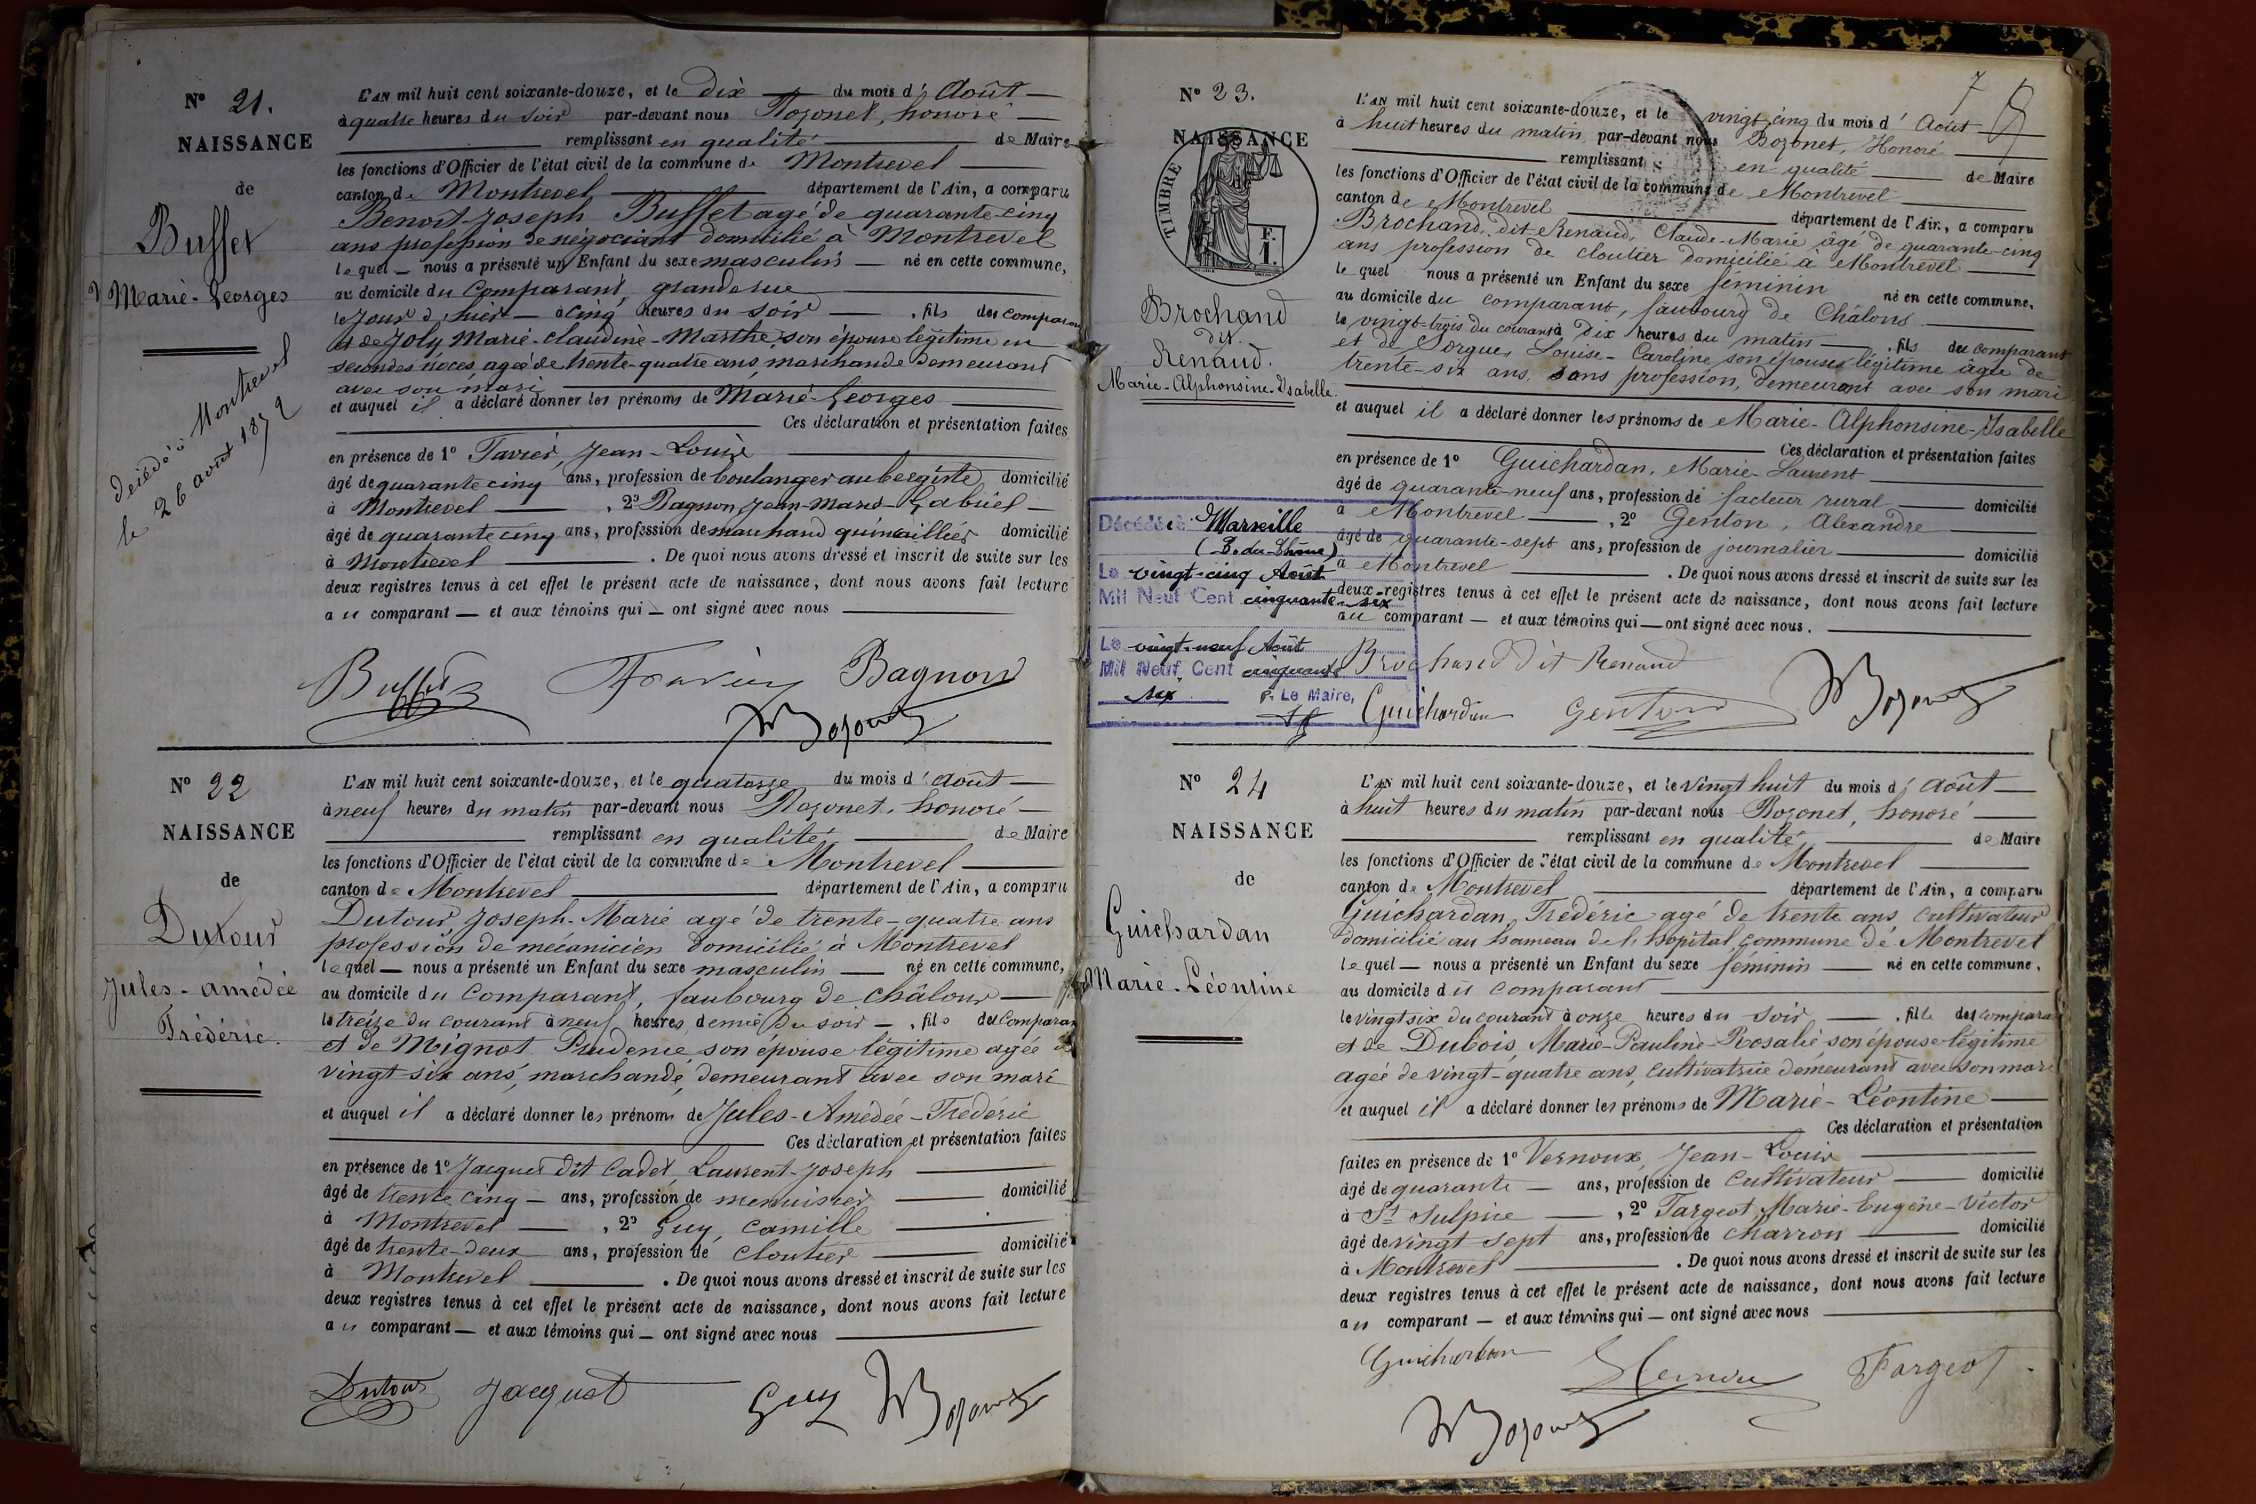 N° 21.
NAISSANCE
de
Buffet
Marie-Georges
décédé à Montrevel
le 26 août 1872
L'AN mil huit cent soixante-douze, et le dix du mois d' Août
à quatre heures du soir par-devant nous Bozonet, honoré
remplissant en qualité de Maire
les fonctions d'Officier de l'état civil de la commune de Montrevel
canton de Montrevel département de l'Ain, a comparu
Benoit-Joseph Buffet agé de quarante-cinq
ans profession de négociant domicilié à Montrevel
lequel nous a présenté un Enfant du sexe masculin né en cette commune,
au domicile du Comparant, grande rue
le Jour d'hier à cinq heures du soir, fils du comparant
et de Joly Marie-Claudine-Marthe son épouse légitime en
secondes noces, agée de trente-quatre ans, marchande demeurant
avec son mari
et auquel il a déclaré donner les prénoms de Marie-Georges
Ces déclaration et présentation faites
en présence de 1° Tavier, Jean-Louis
âgé de quarante cinq ans, profession de boulanger aubergiste domicilié
à Montrevel, 2° Bagnon, Jean-Marie-Gabriel
âgé de quarante cinq ans, profession de marchand quincaillier domicilié
à Montrevel. De quoi nous avons dressé et inscrit de suite sur les
deux registres tenus à cet effet le présent acte de naissance, dont nous avons fait lecture
au comparant et aux témoins qui ont signé avec nous
Buffet Tavier Bagnon
Bozonet
N° 22
NAISSANCE
de
Dutour
Jules-amédée
Frédéric.
L'AN mil huit cent soixante-douze, et le quatorze du mois d' août
à neuf heures du matin par-devant nous Bozonet, honoré
remplissant en qualité de Maire
les fonctions d'Officier de l'état civil de la commune de Montrevel
canton de Montrevel département de l'Ain, a comparu
Dutour, Joseph-Marie agé de trente-quatre ans
profession de mécanicien domicilié à Montrevel
lequel nous a présenté un Enfant du sexe masculin né en cette commune,
au domicile du Comparant, faubourg de châlons
le treize du courant à neuf heures demie du soir, fils du Comparant
et de Mignot Prudence son épouse légitime agée de
vingt-six ans, marchande, demeurant avec son mari
et auquel il a déclaré donner les prénoms de Jules-Amédée-Frédéric
Ces déclaration et présentation faites
en présence de 1° Jacquet dit Cadet, Laurent-Joseph
âgé de trente cinq ans, profession de menuisier domicilié
à Montrevel, 2° Guy, Camille
âgé de trente-deux ans, profession de Cloutier domicilié
à Montrevel. De quoi nous avons dressé et inscrit de suite sur les
deux registres tenus à cet effet le présent acte de naissance, dont nous avons fait lecture
au comparant et aux témoins qui ont signé avec nous
Dutour Jacquet Guy Bozonet
7
N° 23.
NAISSANCE
de
TIMBRE
F.
1.
Brochand
dit
Renaud.
Marie-Alphonsine-Isabelle.
L'AN mil huit cent soixante-douze, et le vingt-cinq du mois d' Août
à huit heures du matin par-devant nous Bozonet, Honoré
remplissant en qualité de Maire
les fonctions d'Officier de l'état civil de la commune de Montrevel
canton de Montrevel département de l'Ain, a comparu
Brochand, dit Renaud, Claude-Marie âgé de quarante-cinq
ans profession de cloutier domicilié à Montrevel
lequel nous a présenté un Enfant du sexe féminin né en cette commune,
au domicile du comparant, faubourg de Châlons
le vingt-trois du courant à dix heures du matin, fils du comparant
et de Sorgues Louise-Caroline, son épouse légitime âgée de
trente-six ans, sans profession, demeurant avec son mari
et auquel il a déclaré donner les prénoms de Marie-Alphonsine-Isabelle
Ces déclaration et présentation faites
en présence de 1° Guichardan, Marie-Laurent
âgé de quarante-neuf ans, profession de facteur rural domicilié
à Montrevel, 2° Genton, Alexandre
âgé de quarante-sept ans, profession de journalier domicilié
à Montrevel. De quoi nous avons dressé et inscrit de suite sur les
deux registres tenus à cet effet le présent acte de naissance, dont nous avons fait lecture
au comparant et aux témoins qui ont signé avec nous.
Décédée à Marseille
(B. du Rhône)
Le vingt-cinq Août
Mil Neuf Cent cinquante-six
Le vingt-neuf Août
Mil Neuf Cent cinquante
six
P. Le Maire,
Brochand dit Renaud
Guichardan Genton Bozonet
N° 24
NAISSANCE
de
Guichardan
Marie-Léontine
L'AN mil huit cent soixante-douze, et le vingt huit du mois d' Août
à huit heures du matin par-devant nous Bozonet, honoré
remplissant en qualité de Maire
les fonctions d'Officier de l'état civil de la commune de Montrevel
canton de Montrevel département de l'Ain, a comparu
Guichardan, Frédéric agé de trente ans, cultivateur
domicilié au hameau de l'hopital, commune de Montrevel
lequel nous a présenté un Enfant du sexe féminin né en cette commune,
au domicile du comparant
le vingt six du courant à onze heures du soir, fille du comparant
et de Dubois, Marie-Pauline-Rosalie, son épouse légitime
agée de vingt-quatre ans, cultivatrice demeurant avec son mari
et auquel il a déclaré donner les prénoms de Marie-Léontine
Ces déclaration et présentation
faites en présence de 1° Vernoux, Jean-Louis
âgé de quarante ans, profession de Cultivateur domicilié
à St Sulpice, 2° Fargeot, Marie-Eugène-Victor
âgé de vingt sept ans, profession de charron domicilié
à Montrevel. De quoi nous avons dressé et inscrit de suite sur les
deux registres tenus à cet effet le présent acte de naissance, dont nous avons fait lecture
au comparant et aux témoins qui ont signé avec nous
Guichardan Fargeot
Bozonet